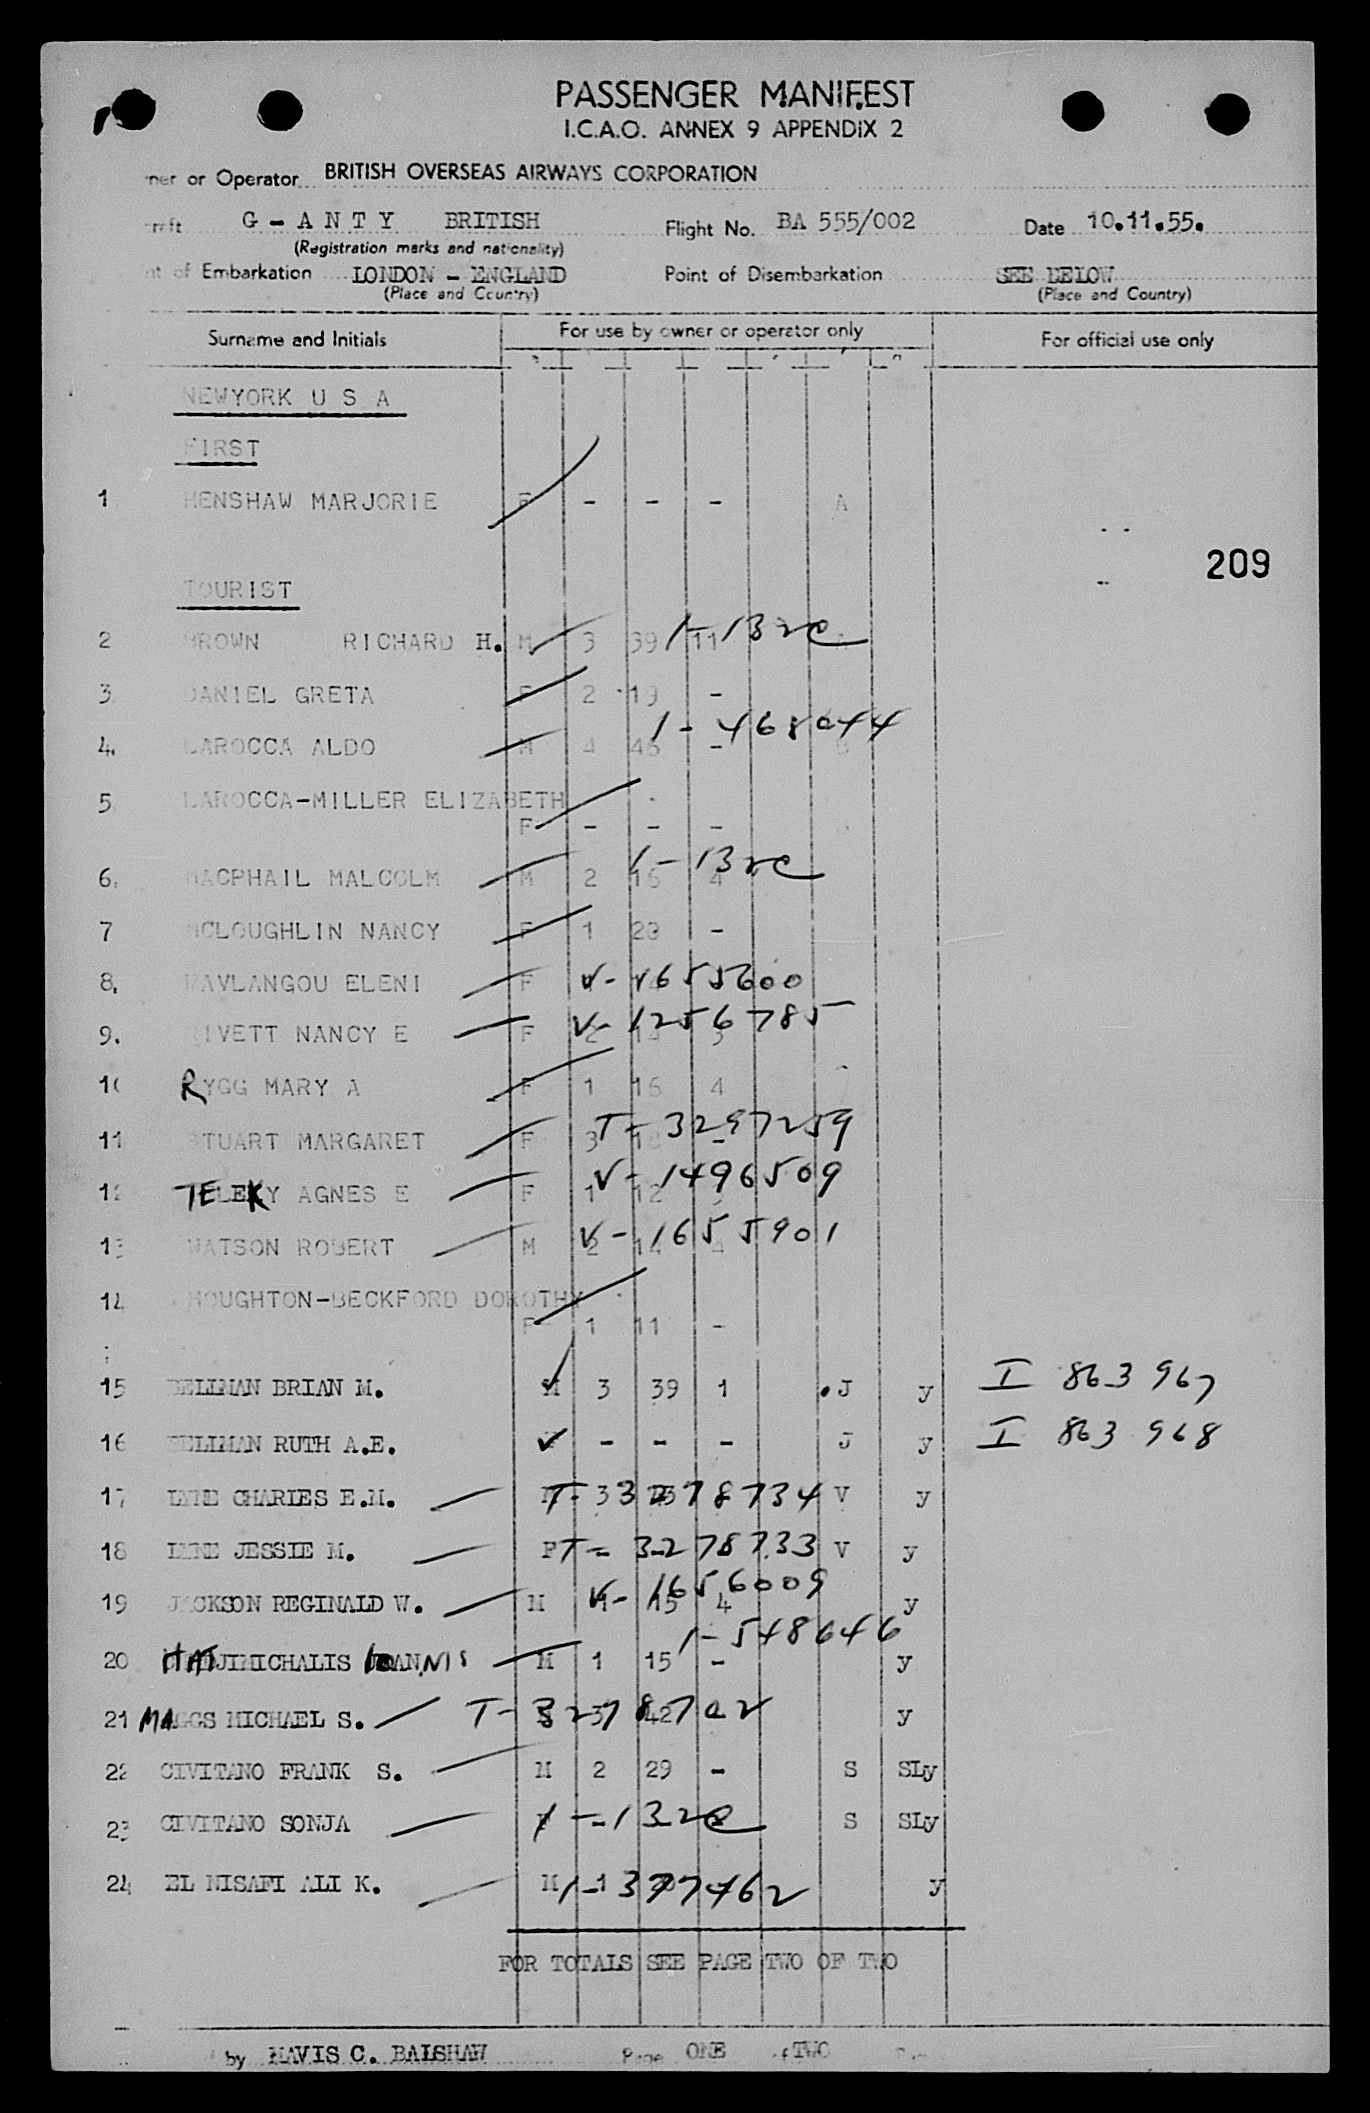 PASSENGER MANIFEST
I.C.A.O. ANNEX 9 APPENDIX 2
ner or Operator BRITISH OVERSEAS AIRWAYS CORPORATION
G - A N T Y BRITISH Flight No. BA 555/002 Date 10.11.55.
(Registration marks and nationality)
of Embarkation LONDON - ENGLAND Point of Disembarkation SEE BELOW
(Place and Country) (Place and Country)
Surname and Initials For use by owner or operator only For official use only
NEWYORK U S A
FIRST
1 HENSHAW MARJORIE F - - - A
209
TOURIST
2 BROWN RICHARD H. M 3 39 11 1-132c A
3. DANIEL GRETA F 2 19 -
4. LAROCCA ALDO M 4 46 - 1-468044 B
5 LAROCCA-MILLER ELIZABETH
F - - -
6. MACPHAIL MALCOLM M 2 16 4 1-132c
7 MCLOUGHLIN NANCY F 1 20 -
8. PAVLANGOU ELENI F V-1655600
9. RIVETT NANCY E F 2 3 V-1256785
10 RYGG MARY A F 1 16 4
11 STUART MARGARET F 3 18 - T-3297259
12 TELEKY AGNES E F 1 12 V-1496509
13 WATSON ROBERT M 2 14 4 V-1655901
14 HOUGHTON-BECKFORD DOROTHY
F 1 11 -
15 BELLMAN BRIAN M. M 3 39 1 J y I 863 967
16 BELLMAN RUTH A.E. - - - J y I 863 968
17 CHARLES E.M. T-3278734 V y
18 JESSIE M. F T-3278733 V y
19 JACKSON REGINALD W. M V-1656009 15 4 y
20 HATJIMICHALIS IOANNIS M 1 15 - 1-548646 y
21 MAGGS MICHAEL S. T-3278702 3 42 y
22 CIVITANO FRANK S. M 2 29 - S SLy
23 CIVITANO SONJA 1-132c S SLy
24 EL NISAFI ALI K. M 1 1-377462 y
FOR TOTALS SEE PAGE TWO OF TWO
by MAVIS C. BALSHAW Page ONE of TWO